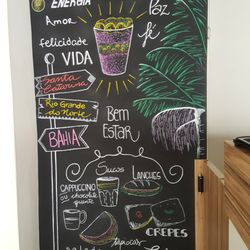 ENERGIA
Amor
Paz
fé
felicidade
VIDA
Santa
Catarina
Rio Grande
do Norte
BAHIA
Bem
ESTAR
Sucos
LANCHES
CAPPUCCINO
OU chocolate
quente
CREPES
Tapiocas